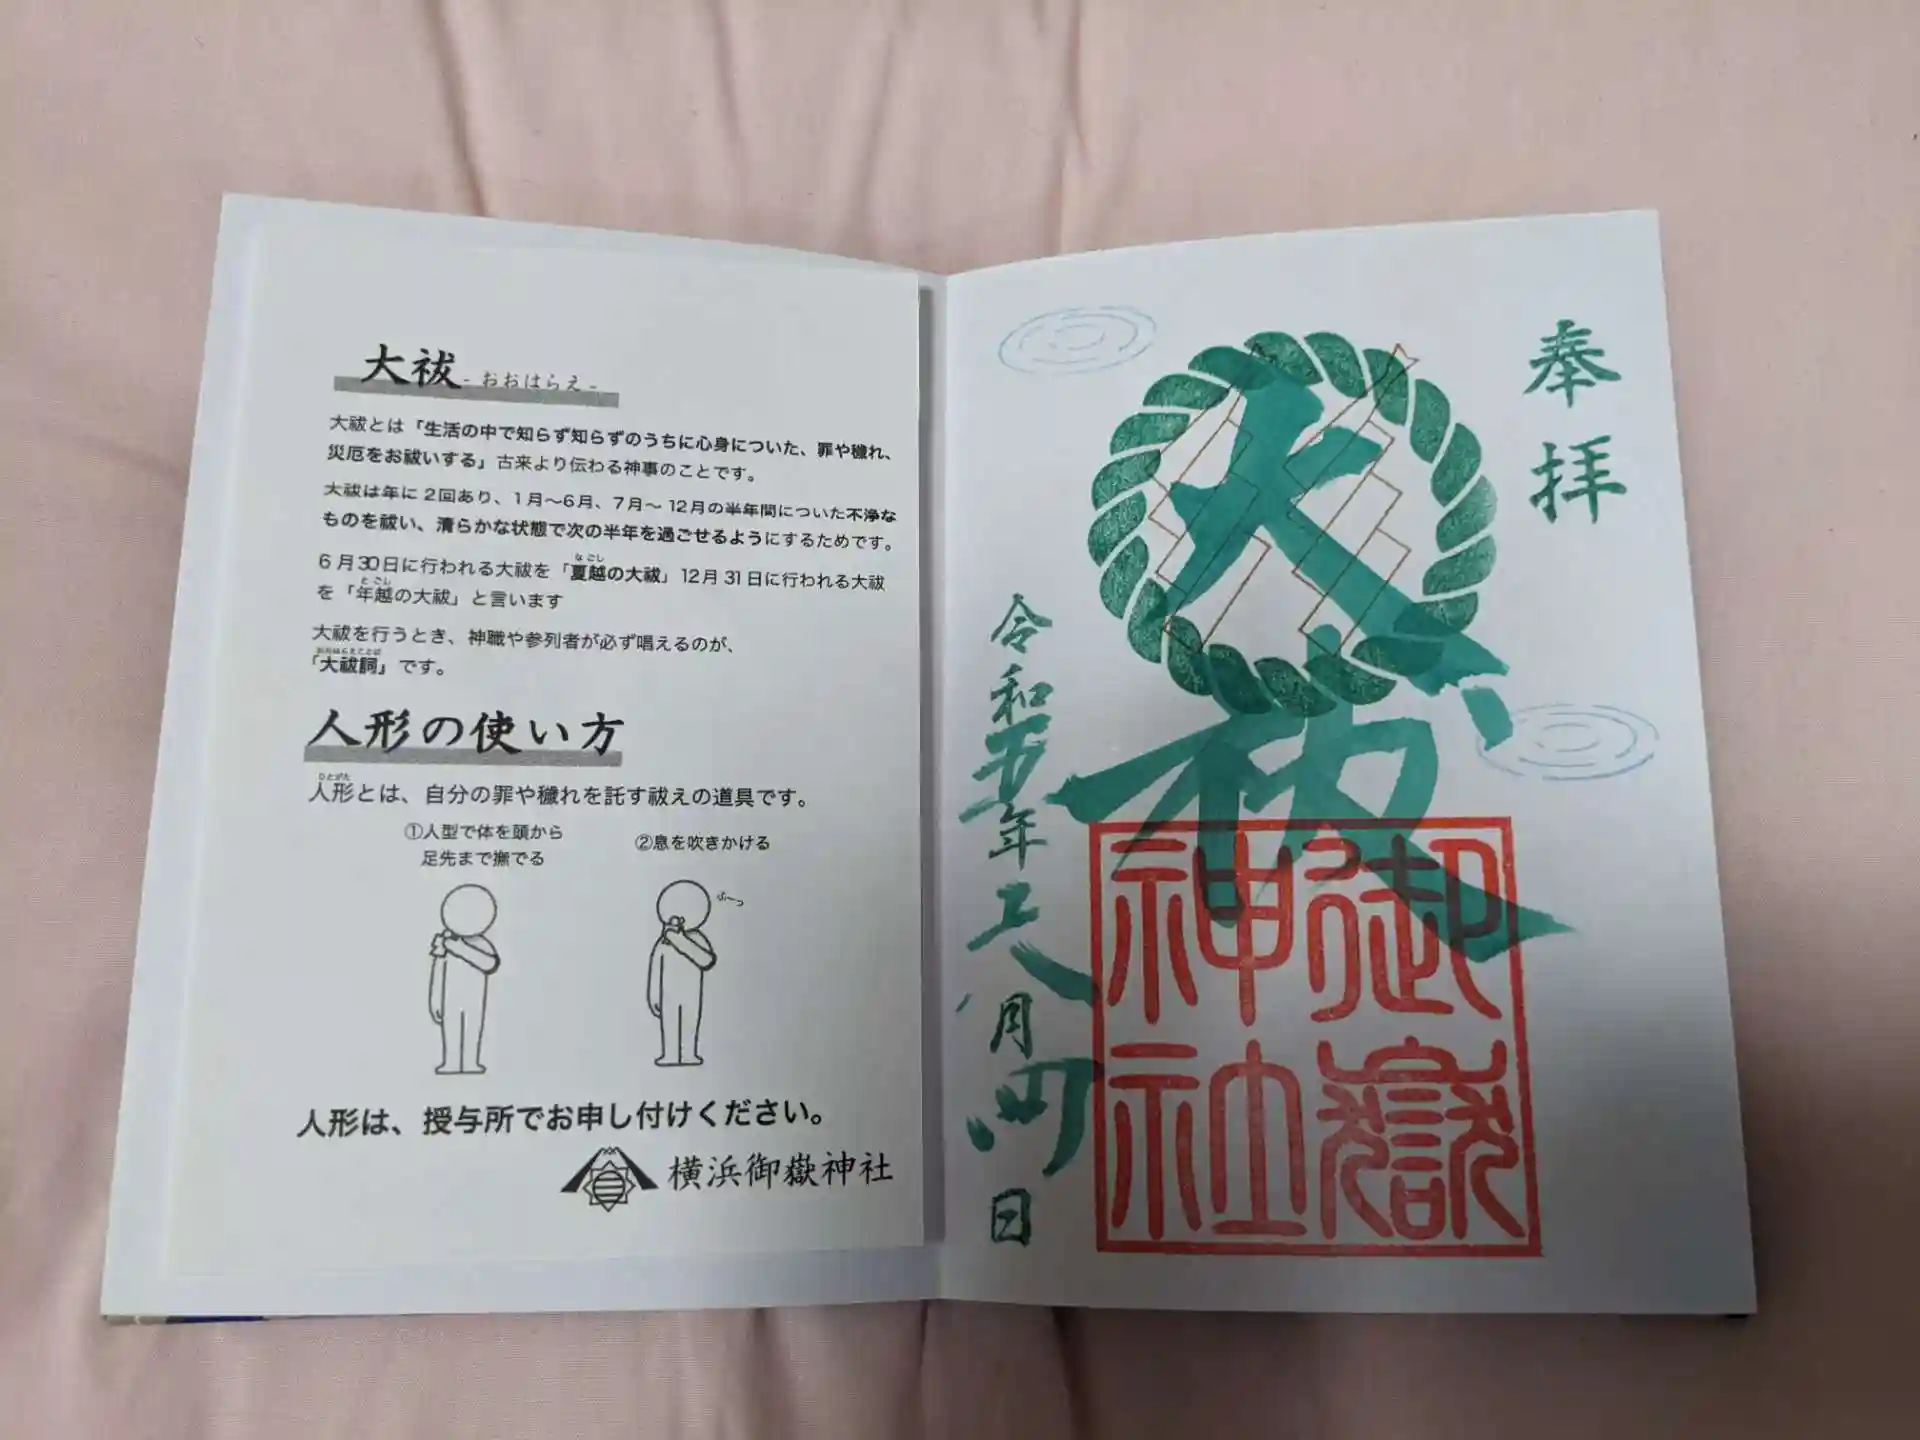 大祓 -おおはらえ-
大祓とは「生活の中で知らず知らずのうちに心身についた、罪や穢れ、
災厄をお祓いする」古来より伝わる神事のことです。
大祓は年に2回あり、1月〜6月、7月〜12月の半年間についた不浄な
ものを祓い、清らかな状態で次の半年を過ごせるようにするためです。
なごし
6月30日に行われる大祓を「夏越の大祓」12月31日に行われる大祓
とごし
を「年越の大祓」と言います
大祓を行うとき、神職や参列者が必ず唱えるのが、
おおはらえことば
「大祓詞」です。
人形の使い方
ひとがた
人形とは、自分の罪や穢れを託す祓えの道具です。
①人型で体を頭から
足先まで撫でる
②息を吹きかける
ふ〜っ
人形は、授与所でお申し付けください。
横浜御嶽神社
奉拝
大祓
御嶽
神社
令和五年六月四日